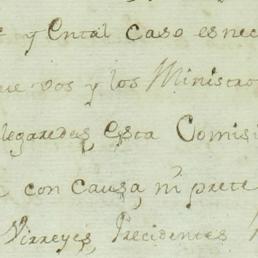 y Ental Caso es nec
ue vos y los Ministro
legaredes, esta Comisi
con Causa, ni prete
Virreyes, Precidentes